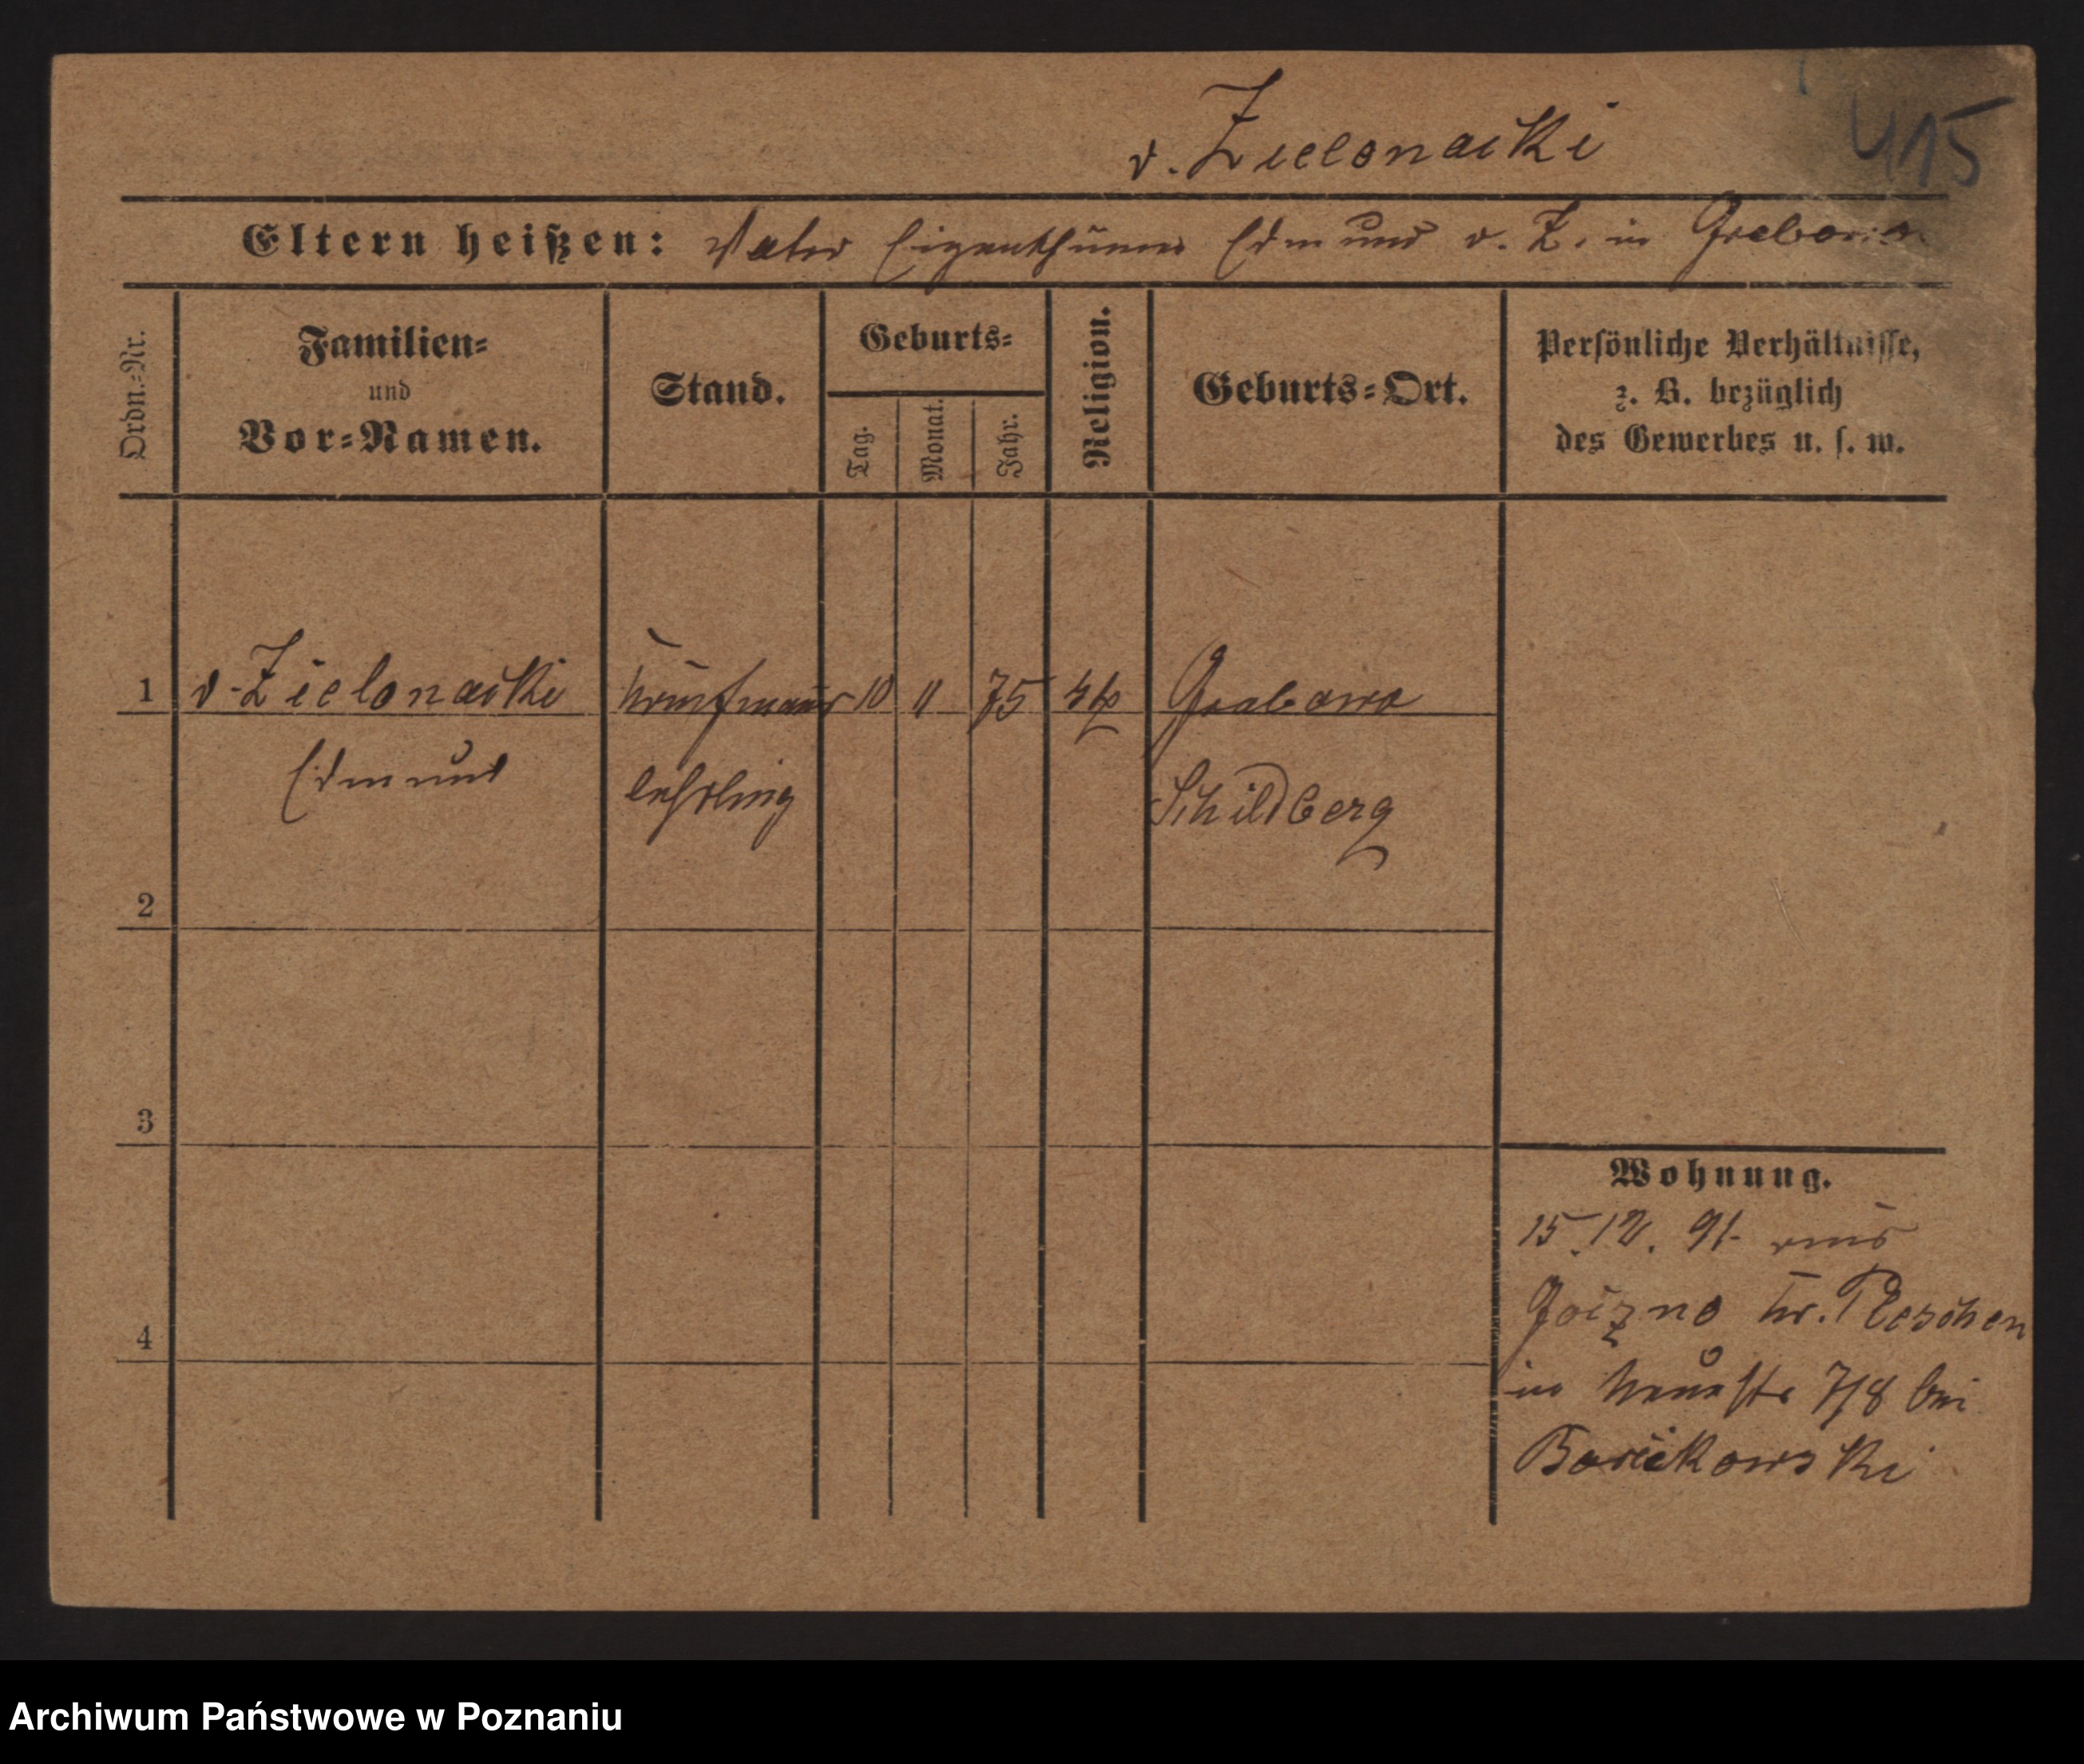 v. Zielonacki
415
Eltern heißen: Vater Eigenthümer Edmund v. Z. in Grabowo
Ordn.-Nr.
Familien-
und
Vor-Namen.
Stand.
Geburts-
Tag.
Monat.
Jahr.
Religion.
Geburts-Ort.
Persönliche Verhältnisse,
z. B. bezüglich
des Gewerbes u. s. w.
1 v. Zielonacki Kaufmanns 10 11 75 kth Grabowo
Edmund lehrling Schildberg
2
3
Wohnung.
15.12. 91. aus
Goizno Kr. Pleschen
4
in 7/8 bei
Archiwum Państwowe w Poznaniu